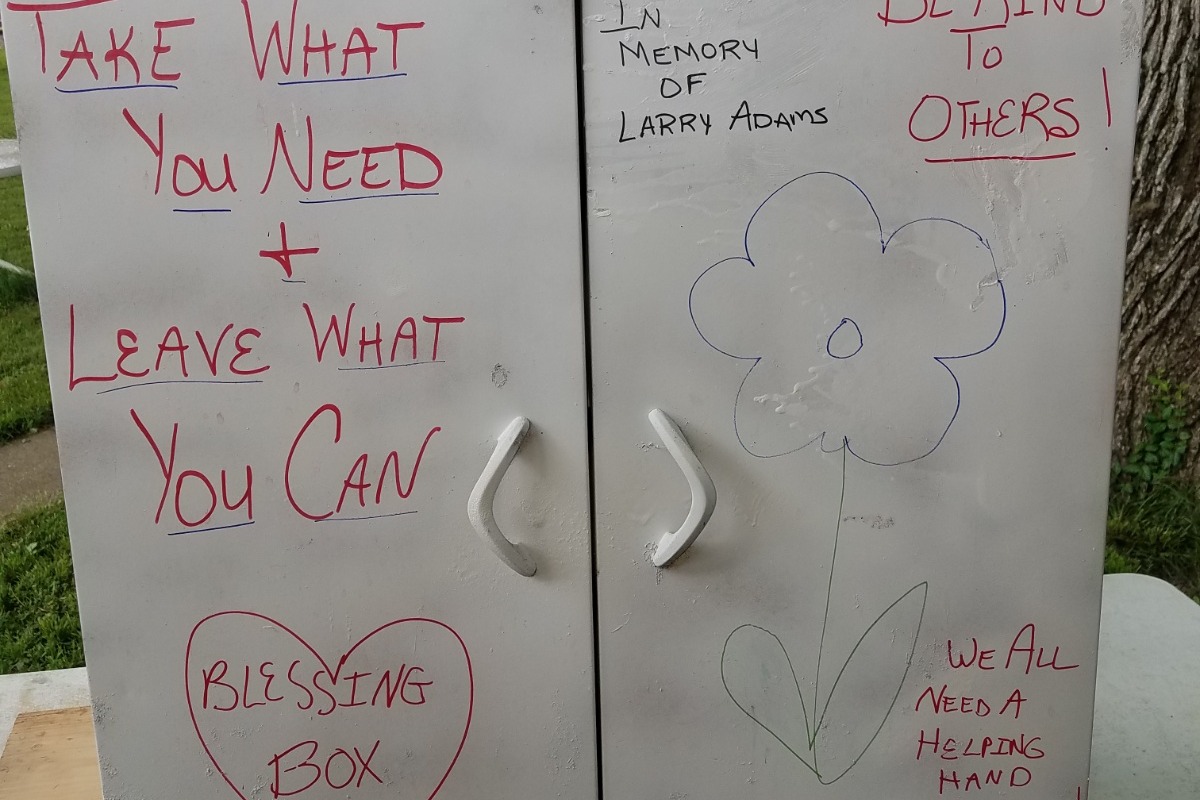 TAKE WHAT
YOU NEED
+
LEAVE WHAT
YOU CAN
BLESSING
BOX
IN
MEMORY
OF
LARRY ADAMS
BE KIND
TO
OTHERS!
WE ALL
NEED A
HELPING
HAND